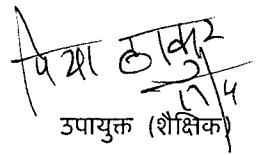 प्रिया ठाकुर
17/4
उपायुक्त (शैक्षिक)